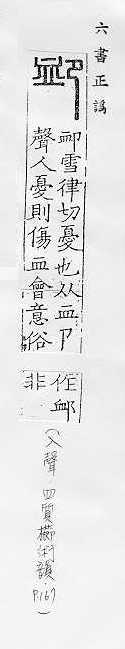 六書正譌
卹
卹雪律切憂也从血卩
聲人憂則傷血會意俗
作䘏
非
(入聲.四質櫛術韻.P.167)